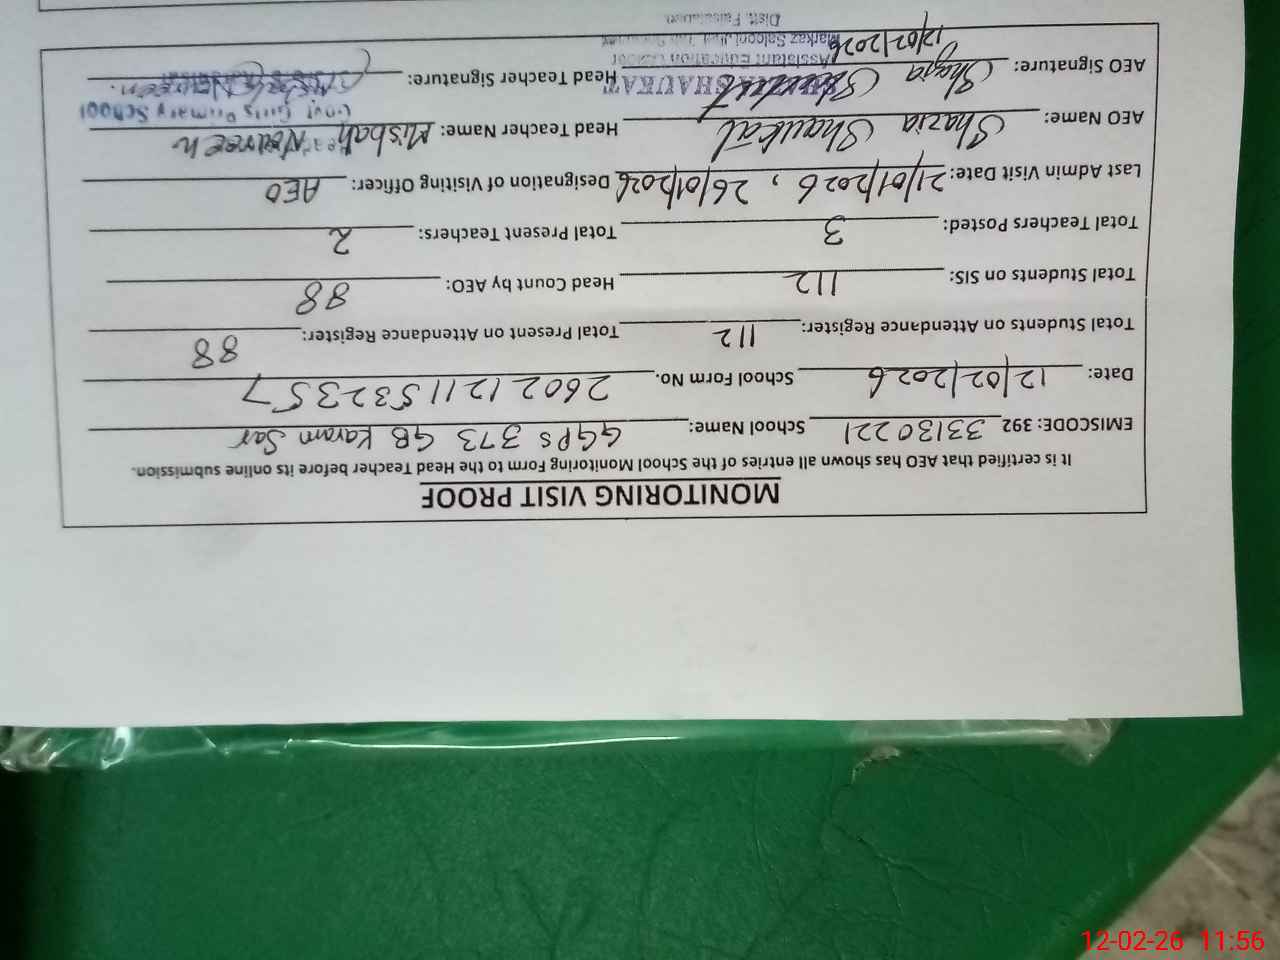 MONITORING VISIT PROOF
It is certified that AEO has shown all entries of the School Monitoring Form to the Head Teacher before its online submission.
EMISCODE: 392 33130221 School Name: GGPS 373 GB Karam Sar
Date: 12/02/2026 School Form No. 260212115322357
Total Students on Attendance Register: 112 Total Present on Attendance Register: 88
Total Students on SIS: 112 Head Count by AEO: 88
Total Teachers Posted: 3 Total Present Teachers: 2
Last Admin Visit Date: 21/01/2026, 26/01/2026 Designation of Visiting Officer: AEO
AEO Name: Shazia Shaukat Head Teacher Name: Misbah Noureen
Govt Girls Primary School
AEO Signature: Shazia Shaukat Head Teacher Signature:
12/02/2026
SHAUKAT
Assistant Education Officer
Markaz
Distt. Faisalabad
12-02-26 11:56